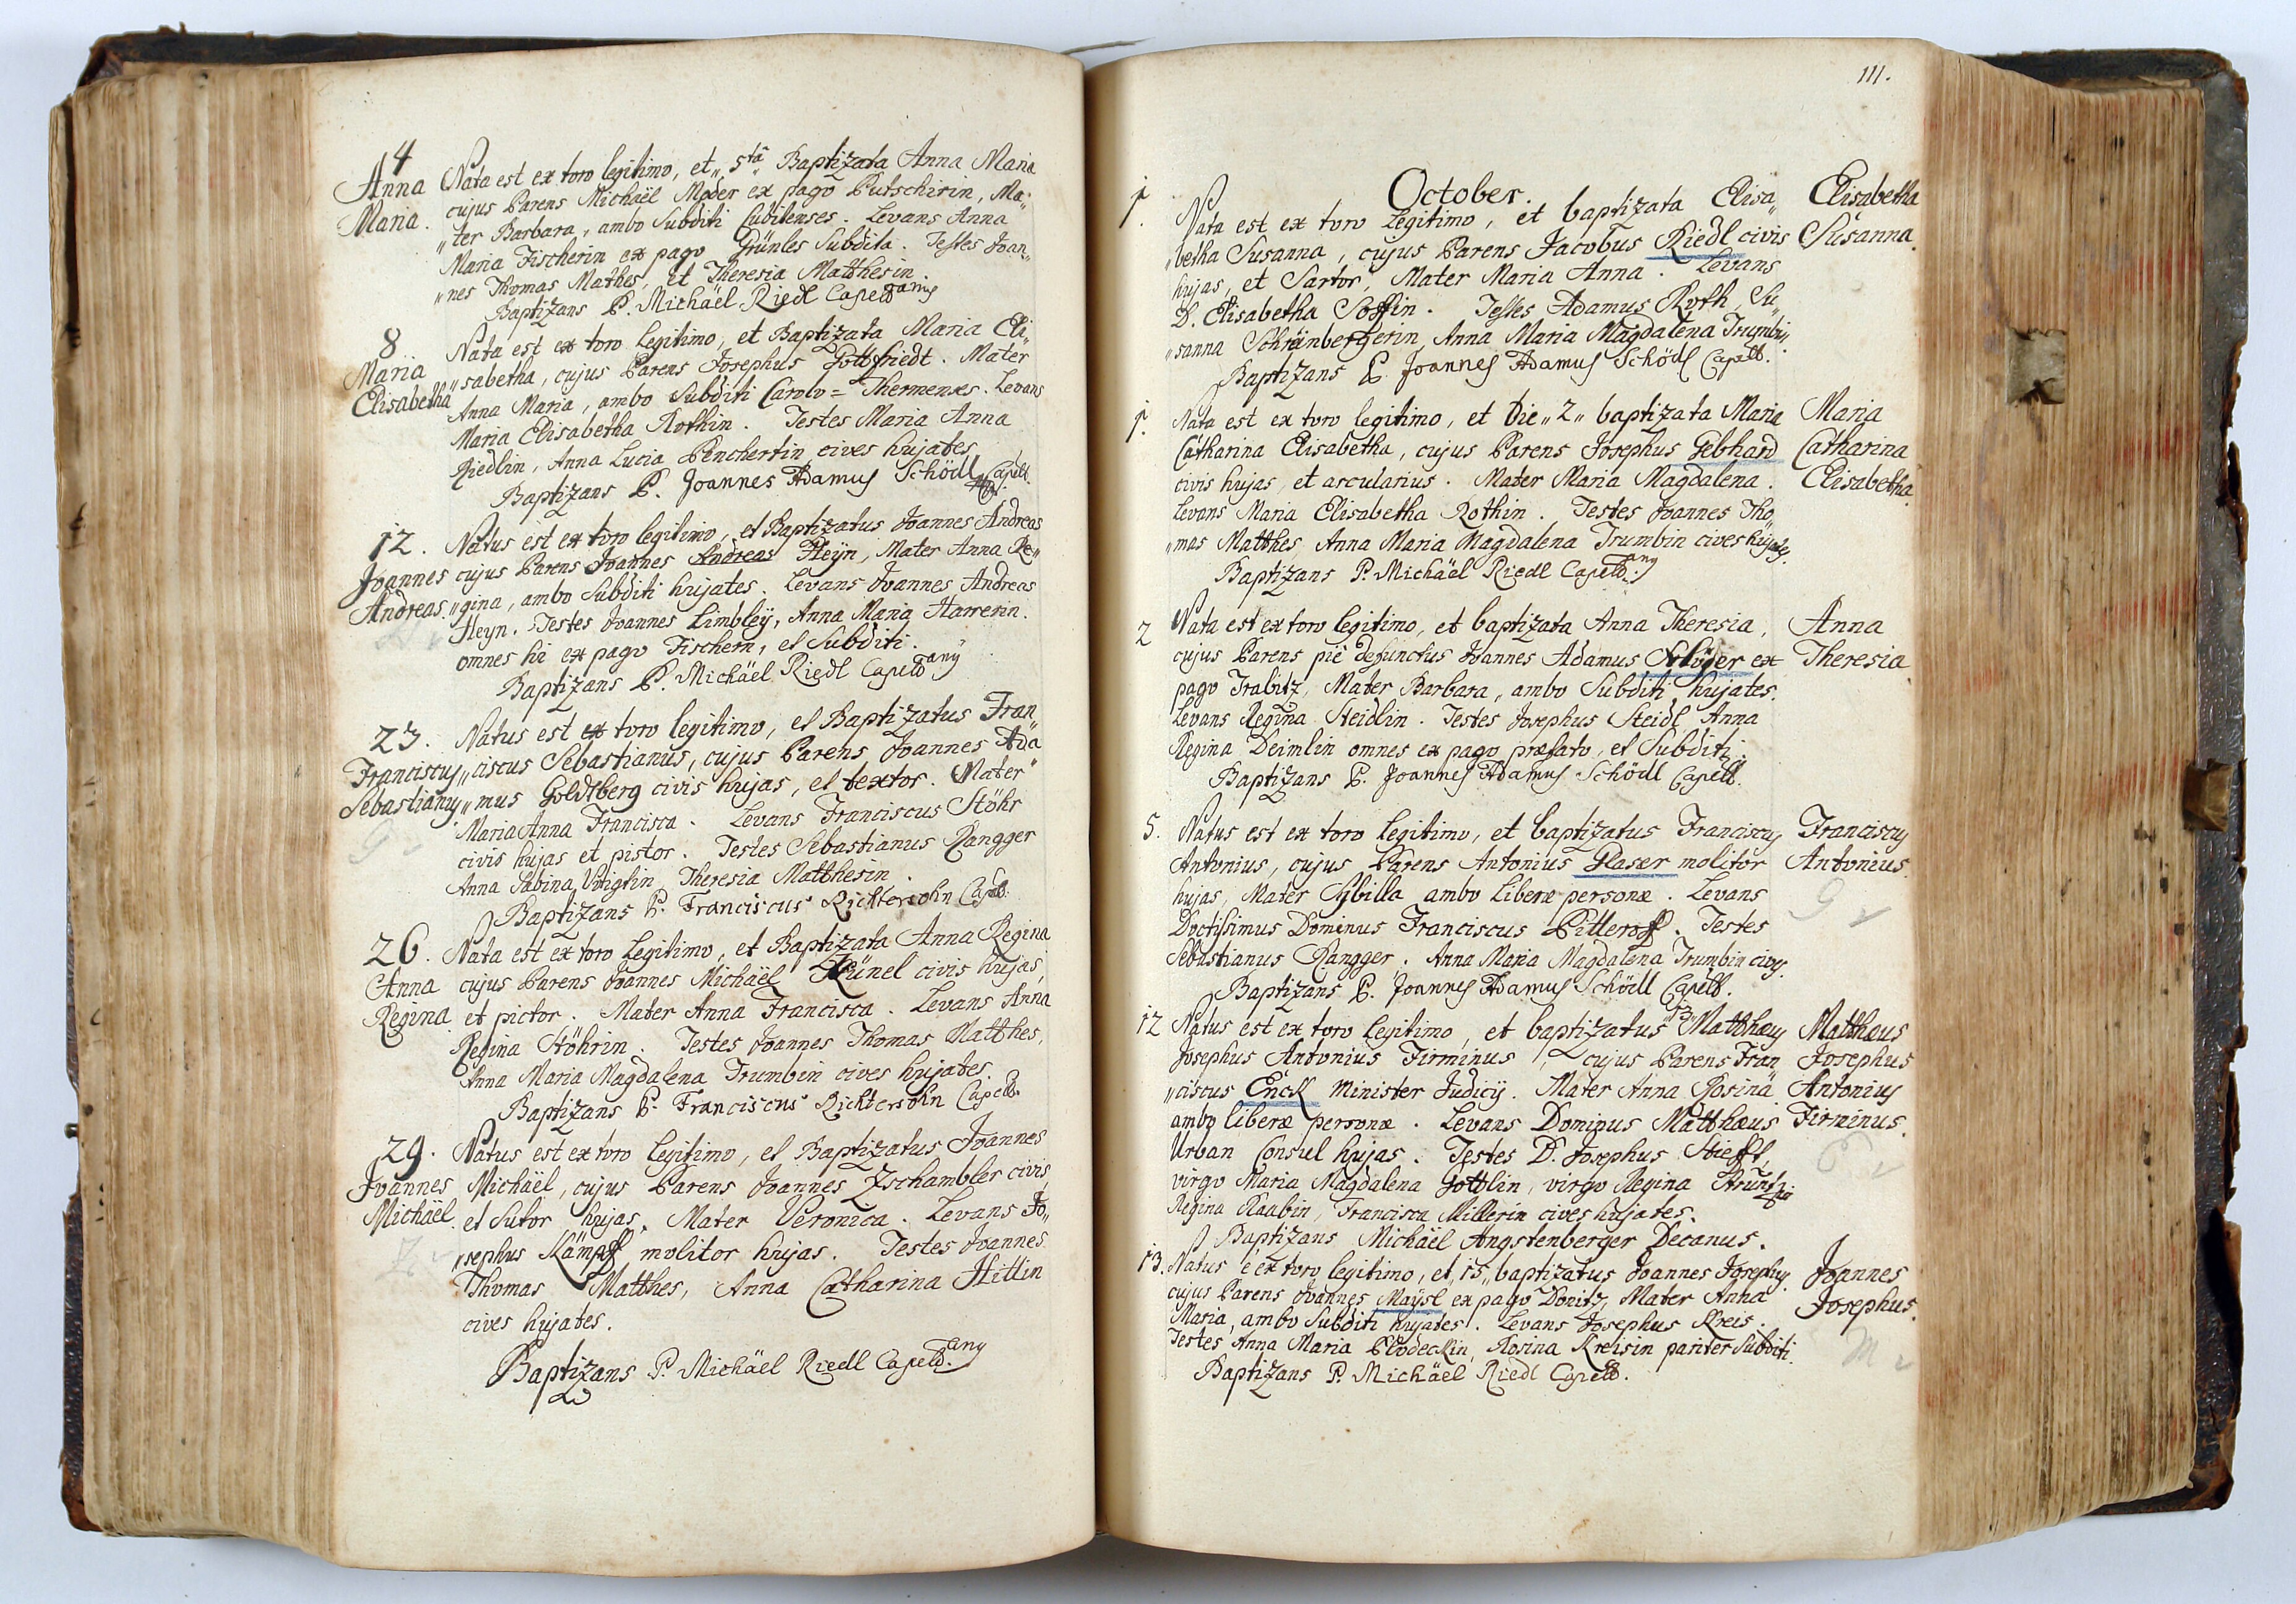 4
Anna
Maria.
Nata est ex toro legitimo, et „5tâ Baptizata Anna Maria
cujus Parens Michaël Moder ex pago Putschirin, Ma„
„ter Barbara, ambo Subditi Cubitenses. Levans Anna
Maria Fischerin ex pago Grünles Subdita. Testes Joan„
„nes Thomas Mathes, et Theresia Matthesin.
Baptizans P. Michäel Riedl Capellany
8
Maria
Elisabetha
Nata est ex toro Legitimo, et Baptizata Maria Eli„
„sabetha, cujus Parens Josephus Gottfriedt. Mater
Anna Maria, ambo Subditi Carolo = Thermenses. Levans
Maria Elisabetha Rothin. Testes Maria Anna
Riedlin, Anna Lucia Penchertin cives hujates
Baptizans P. Joannes Adamus Schödl Capell.
12.
Joannes
Andreas.
Natus est ex toro legitimo, et Baptizatus Joannes Andreas
cujus Parens Joannes Andreas Heÿn, Mater Anna Re„
„gina, ambo Subditi hujates. Levans Joannes Andreas
Heyn. Testes Joannes Limbleÿ, Anna Maria Harrerin.
omnes hi ex pago Fischern, et Subditi.
Baptizans P. Michäel Riedl Capellany
23.
Franciscus
Sebastianus
Natus est ex toro legitimo, et Baptizatus Fran„
„ciscus Sebastianus, cujus Parens Joannes Ada„
„mus Goldtberg civis hujas, et textor. Mater
Maria Anna Francisca. Levans Franciscus Stöhr
civis hujas et pistor. Testes Sebastianus Rangger
Anna Sabina Theresia Matthesin.
Baptizans P. Franciscus Richtersohn Capell.
26.
Anna
Regina
Nata est ex toro Legitimo, et Baptizata Anna Regina
cujus Parens Joannes Michäel Künel civis hujas,
et pictor. Mater Anna Francisca. Levans Anna
Regina Stöhrin. Testes Joannes Thomas Matthes,
Anna Maria Magdalena Trumbin cives hujates.
Baptizans P. Franciscus Richtersohn Capell.
29.
Joannes
Michäel.
Natus est ex toro Legitimo, et Baptizatus Joannes
Michäel, cujus Parens Joannes Zschambler civis,
et Sutor hujas. Mater Veronica. Levans Jo„
„sephus Kämpff molitor hujas. Testes Joannes
Thomas Matthes, Anna Catharina Hittin
cives hujates.
Baptizans P. Michäel Riedl Capellany
111.
October.
1.
Nata est ex toro Legitimo, et baptizata Elisa„
„betha Susanna, cujus Parens Jacobus Riedl civis
hujas, et Sartor, Mater Maria Anna. Levans
D. Elisabetha Soffin. Testes Adamus Roth, Su„
„sanna Schrämbergerin, Anna Maria Magdalena Trumbin.
Baptizans P. Joannes Adamus Schödl Capell.
Elisabetha
Susanna.
1.
Nata est ex toro legitimo, et Die „2„ baptizata Maria
Catharina Elisabetha, cujus Parens Josephus Gebhard
civis hujas, et arcularius. Mater Maria Magdalena.
Levans Maria Elisabetha Rothin. Testes Joannes Tho
„mas Matthes, Anna Maria Magdalena Trumbin cives hujates.
Baptizans P. Michäel Riedl Capellany
Maria
Catharina
Elisabetha.
2
Nata est ex toro legitimo, et baptizata Anna Theresia,
cujus Parens piè defunctus Joannes Adamus ex
pago Trabitz, Mater Barbara, ambo Subditi hujates.
Levans Regina Steidlin. Testes Josephus Steidl, Anna
Regina Deimlin omnes ex pago præfato, et Subditi.
Baptizans P. Joannes Adamus Schödl Capell.
Anna
Theresia
5.
Natus est ex toro Legitimo, et baptizatus Franciscus
Antonius, cujus Parens Antonius Glaser molitor
hujas, Mater Sybilla ambo liberæ personæ. Levans
Doctissimus Dominus Franciscus Pitteroff. Testes
Sebastianus Rangger. Anna Maria Magdalena Trumbin cives.
Baptizans P. Joannes Adamus Schödl Capell.
Franciscus
Antonius.
G
12
Natus est ex toro Legitimo, et baptizatus „13„ Matthæus
Josephus Antonius Firminus, cujus Parens Fran
„ciscus Enckl Minister Judicij. Mater Anna Rosina
ambo liberæ personæ. Levans Dominus Matthæus
Urban Consul hujas. Testes D. Josephus Stiefft,
virgo Maria Magdalena Gottlin, virgo Regina
Regina Raabin, Francisca Millerin cives hujates.
Baptizans Michäel Angstenberger Decanus.
Matthæus
Josephus
Antonius
Firminus.
E
13.
Natus è ex toro legitimo, et „15„ baptizatus Joannes Josephus
cujus Parens Joannes Maÿsl ex pago Donitz, Mater Anna
Maria, ambo Subditi hujates. Levans Josephus Kreis.
Testes Anna Maria Plodeckin, Rosina Kreisin pariter Subditi.
Baptizans P. Michäel Riedl Capell.
Joannes
Josephus.
M